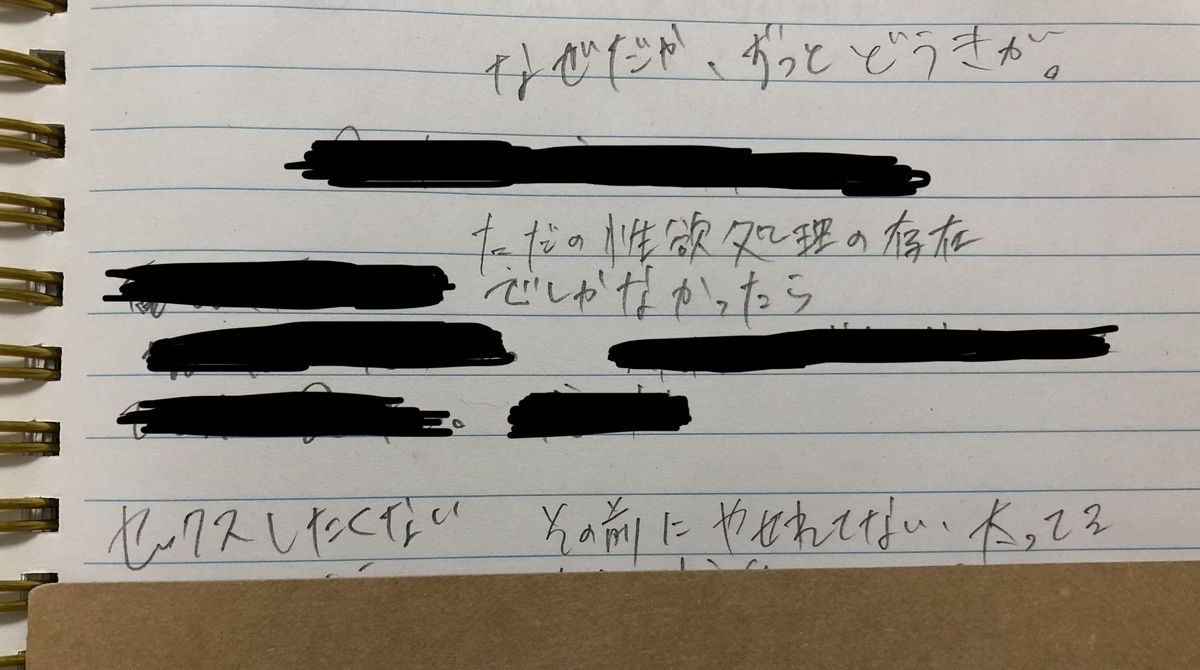 なぜだか、ずっとどうきが。
ただの性欲処理の存在
でしかなかったら
セックスしたくない その前にやせれてない、太ってる